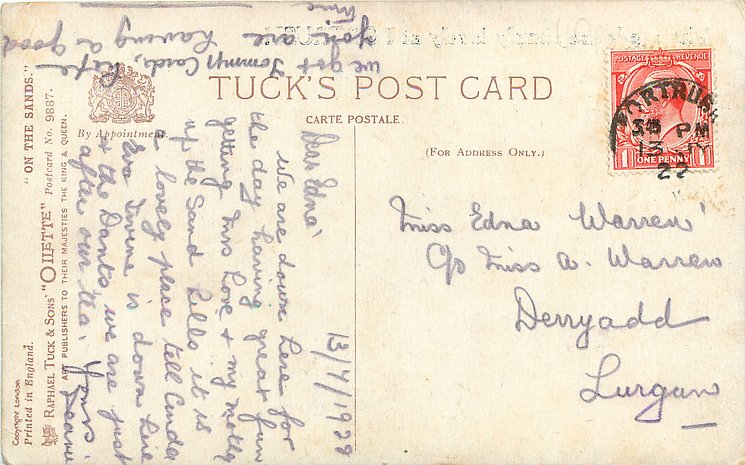 we got Tommys Card, hope
you are having a good
time
TUCK'S POST CARD
CARTE POSTALE.
(FOR ADDRESS ONLY.)
By Appointment.
"ON THE SANDS."
RAPHAEL TUCK & SONS' "OILETTE" Postcard No. 9887.
ART PUBLISHERS TO THEIR MAJESTIES THE KING & QUEEN.
Copyright London
Printed in England.
POSTAGE REVENUE
1 ONE PENNY 1
PORTRUSH
PM
13 JY
22
13/7/1922
Dear Edna'
We are down here for
the day having great fun
getting Mrs Love & my
up the Sand hills it is
a lovely place tell
Eva Irvine is down here
& the Dants, we are just
after our tea. Yours'
Miss Edna Warren'
C/o Miss A. Warren
Derryadd
Lurgan